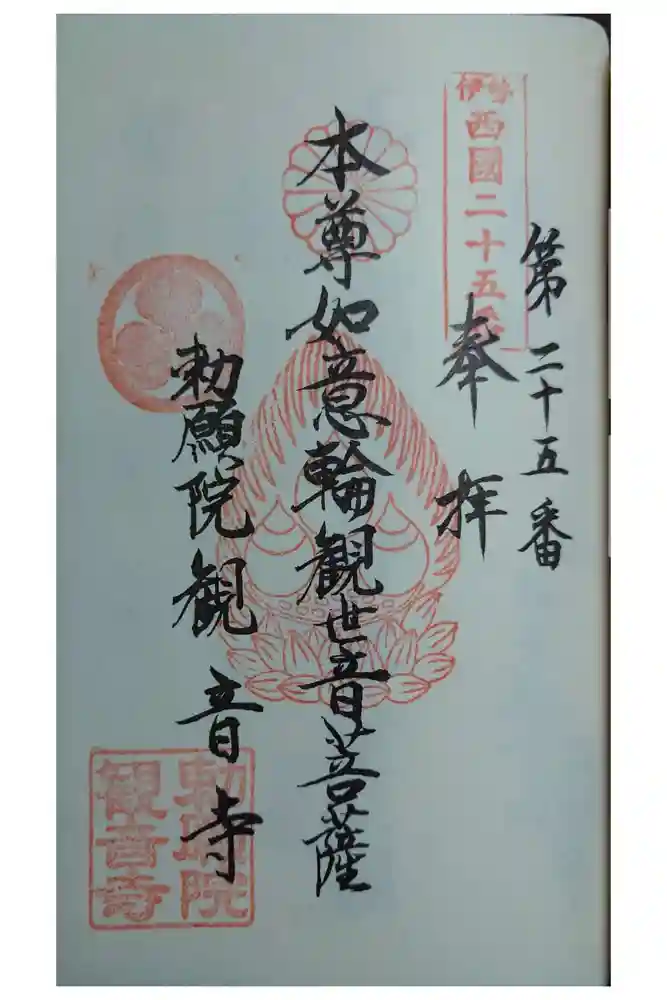 第二十五番
伊勢
西國二十五番
奉拝
本尊如意輪観世音菩薩
勅願院観音寺
勅願院
観音寺